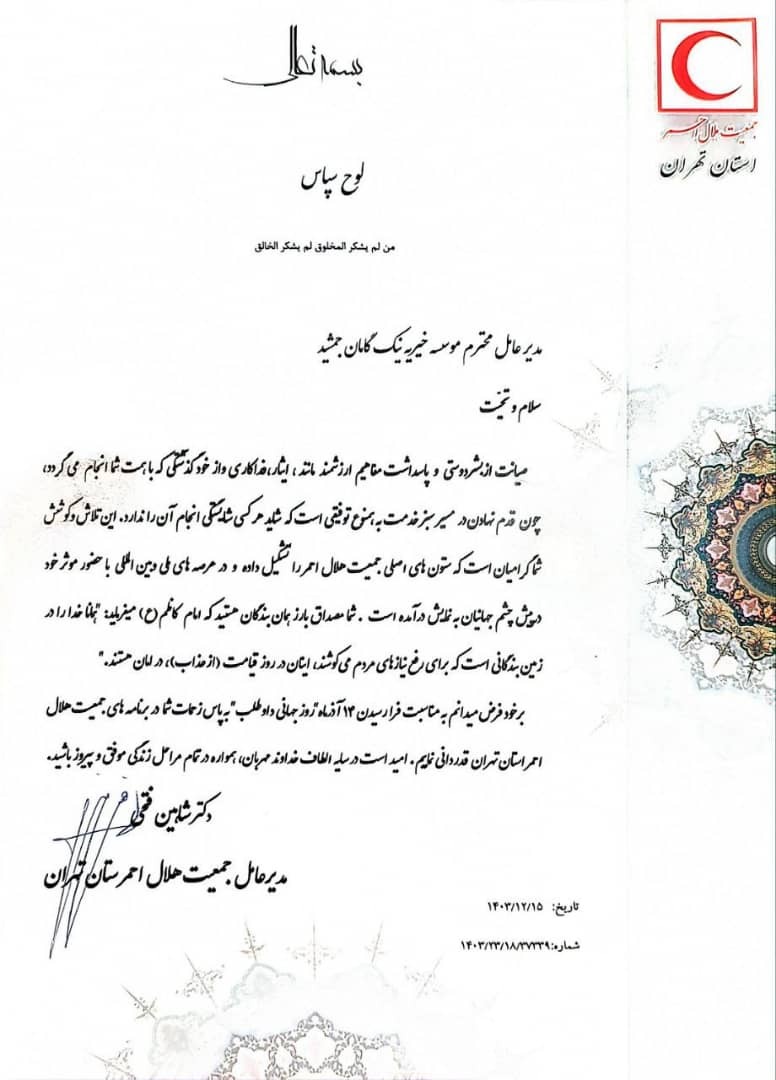 بسمه تعالی
جمعیت هلال احمر
استان تهران
لوح سپاس
من لم یشکر المخلوق لم یشکر الخالق
مدیر عامل محترم موسسه خیریه نیک گامان جمشید
سلام و تحیّت
صیانت از بشردوستی و پاسداشت مفاهیم ارزشمند مانند ، ایثار، فداکاری و از خود گذشتگی که با همت شما انجام می گردد،
چون قدم نهادن در مسیر سبز خدمت به همنوع توفیقی است که شاید هر کسی شایستگی انجام آن را ندارد. این تلاش و کوشش
شما گرامیان است که ستون های اصلی جمعیت هلال احمر را تشکیل داده و در عرصه های ملی و بین المللی با حضور موثر خود
در پیش چشم جهانیان به نمایش درآمده است . شما مصداق بارز همان بندگان هستید که امام کاظم (ع) میفرماید: "همانا خدا را در
زمین بندگانی است که برای رفع نیازهای مردم می کوشند، اینان در روز قیامت (از عذاب)، در امان هستند."
بر خود فرض میدانم به مناسبت فرا رسیدن ۱۴ آذرماه "روز جهانی داوطلب" به پاس زحمات شما در برنامه های جمعیت هلال
احمر استان تهران قدردانی نمایم . امید است در سایه الطاف خداوند مهربان، همواره در تمام مراحل زندگی موفق و پیروز باشید.
دکتر شاهین فتحی
مدیرعامل جمعیت هلال احمر ستان تهران
تاریخ: ۱۴۰۳/۱۲/۱۵
شماره: ۱۴۰۳/۲۳/۱۸/۳۷۳۳۹